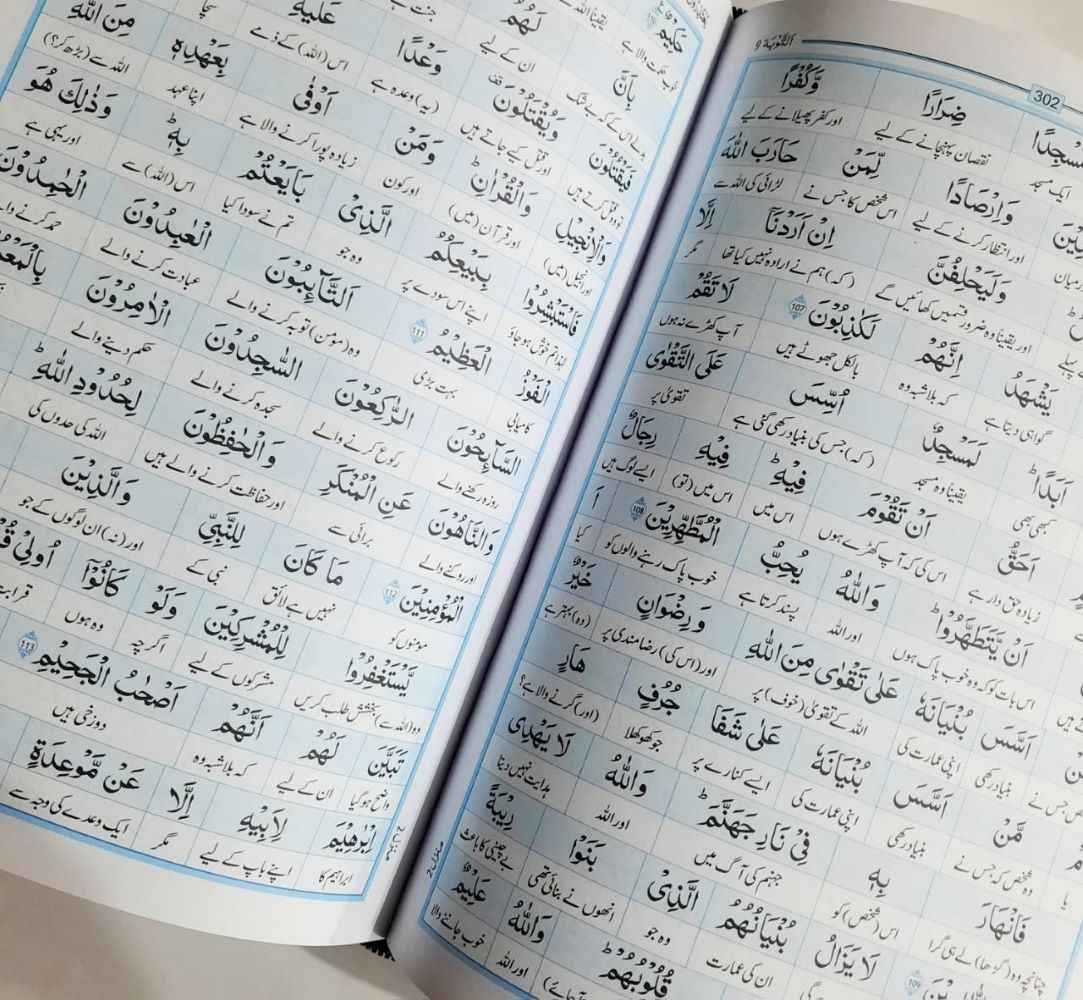 302
التَّوْبَة 9
ضِرَارًا وَّكُفْرًا
نقصان پہنچانے کے لیے اور کفر پھیلانے کے لیے
وَاِرْصَادًا لِّمَنْ حَارَبَ اللّٰهَ
اور انتظار کرنے کے لیے اس شخص کا جس نے لڑائی کی اللہ سے
وَلَيَحْلِفُنَّ اِنْ اَرَدْنَاۤ اِلَّا
اور یقیناً وہ ضرور قسمیں کھائیں گے (کہ) ہم نے ارادہ نہیں کیا تھا مگر
يَشْهَدُ اِنَّهُمْ لَكٰذِبُوْنَ 107 لَا تَقُمْ
گواہی دیتا ہے کہ بلاشبہ وہ بالکل جھوٹے ہیں آپ کھڑے نہ ہوں
اَبَدًا لَمَسْجِدٌ اُسِّسَ عَلَى التَّقْوٰى
کبھی بھی یقیناً وہ مسجد (کہ) جس کی بنیاد رکھی گئی ہے تقویٰ پر
اَحَقُّ اَنْ تَقُوْمَ فِيْهِ فِيْهِ رِجَالٌ
زیادہ حق دار ہے اس کی کہ آپ کھڑے ہوں اس میں اس میں (تو) ایسے لوگ ہیں
اَنْ يَّتَطَهَّرُوْا وَاللّٰهُ يُحِبُّ الْمُطَّهِّرِيْنَ 108 اَ
اس بات کو کہ وہ خوب پاک ہوں اور اللہ پسند کرتا ہے خوب پاک رہنے والوں کو کیا
اَسَّسَ بُنْيَانَهٗ عَلٰى تَقْوٰى مِنَ اللّٰهِ وَرِضْوَانٍ خَيْرٌ
بنیاد رکھی اپنی عمارت کی اللہ کے تقویٰ (خوف) پر اور (اس کی) رضامندی پر (وہ) بہتر ہے
مَّنْ اَسَّسَ بُنْيَانَهٗ عَلٰى شَفَا جُرُفٍ هَارٍ
وہ شخص کہ جس نے بنیاد رکھی اپنی عمارت کی ایسے کنارے پر جو کھوکھلا (اور) گرنے والا ہے؟
فَانْهَارَ بِهٖ فِيْ نَارِ جَهَنَّمَ وَاللّٰهُ لَا يَهْدِى
چنانچہ وہ (گڑھا) لے ہی گرا اس (شخص) کو جہنم کی آگ میں اور اللہ ہدایت نہیں دیتا
109 لَا يَزَالُ بُنْيَانُهُمُ الَّذِىْ بَنَوْا رِيْبَةً
ان کی عمارت وہ جو انھوں نے بنائی تھی بے چینی کا باعث
قُلُوْبُهُمْ وَاللّٰهُ عَلِيْمٌ
اور اللہ خوب جاننے والا
منزل 2
حَكِيْمٌ
بِاَنَّ لَهُمُ
ان کے لیے
فَيَقْتُلُوْنَ وَيُقْتَلُوْنَ وَعْدًا عَلَيْهِ
اور قتل کیے جاتے ہیں (یہ) وعدہ ہے اس (اللہ) کے ذمے سچا
وَالْاِنْجِيْلِ وَالْقُرْاٰنِ وَمَنْ اَوْفٰى بِعَهْدِهٖ مِنَ اللّٰهِ
اور انجیل (میں) اور قرآن (میں) اور کون زیادہ پورا کرنے والا ہے اپنا عہد اللہ سے (بڑھ کر؟)
فَاسْتَبْشِرُوْا بِبَيْعِكُمُ الَّذِىْ بَايَعْتُمْ بِهٖ وَذٰلِكَ هُوَ
لہٰذا تم خوش ہو جاؤ اپنے اس سودے پر وہ جو تم نے سودا کیا اس (اللہ) سے اور یہی ہے
الْفَوْزُ الْعَظِيْمُ 111 اَلتَّآئِبُوْنَ الْعٰبِدُوْنَ الْحٰمِدُوْنَ
کامیابی بہت بڑی وہ (مومن) توبہ کرنے والے عبادت کرنے والے
السَّآئِحُوْنَ الرّٰكِعُوْنَ السّٰجِدُوْنَ الْاٰمِرُوْنَ
روزہ رکھنے والے رکوع کرنے والے سجدہ کرنے والے حکم دینے والے
وَالنَّاهُوْنَ عَنِ الْمُنْكَرِ وَالْحٰفِظُوْنَ لِحُدُوْدِ اللّٰهِ
اور روکنے والے برائی سے اور حفاظت کرنے والے ہیں اللہ کی حدوں کی
الْمُؤْمِنِيْنَ 112 مَا كَانَ لِلنَّبِيِّ وَالَّذِيْنَ
مومنوں کو نہیں ہے لائق نبی کے اور (نہ) ان لوگوں کے جو
يَّسْتَغْفِرُوْا لِلْمُشْرِكِيْنَ وَلَوْ كَانُوْۤا اُولِيْ
وہ (اللہ سے) بخشش طلب کریں مشرکوں کے لیے اگرچہ وہ ہوں
تَبَيَّنَ لَهُمْ اَنَّهُمْ اَصْحٰبُ الْجَحِيْمِ 113
واضح ہو گیا ان کے لیے کہ بلاشبہ وہ دوزخی ہیں
اِبْرٰهِيْمَ لِاَبِيْهِ اِلَّا عَنْ مَّوْعِدَةٍ
ابراہیم کا اپنے باپ کے لیے مگر ایک وعدے کی وجہ سے
منزل 2